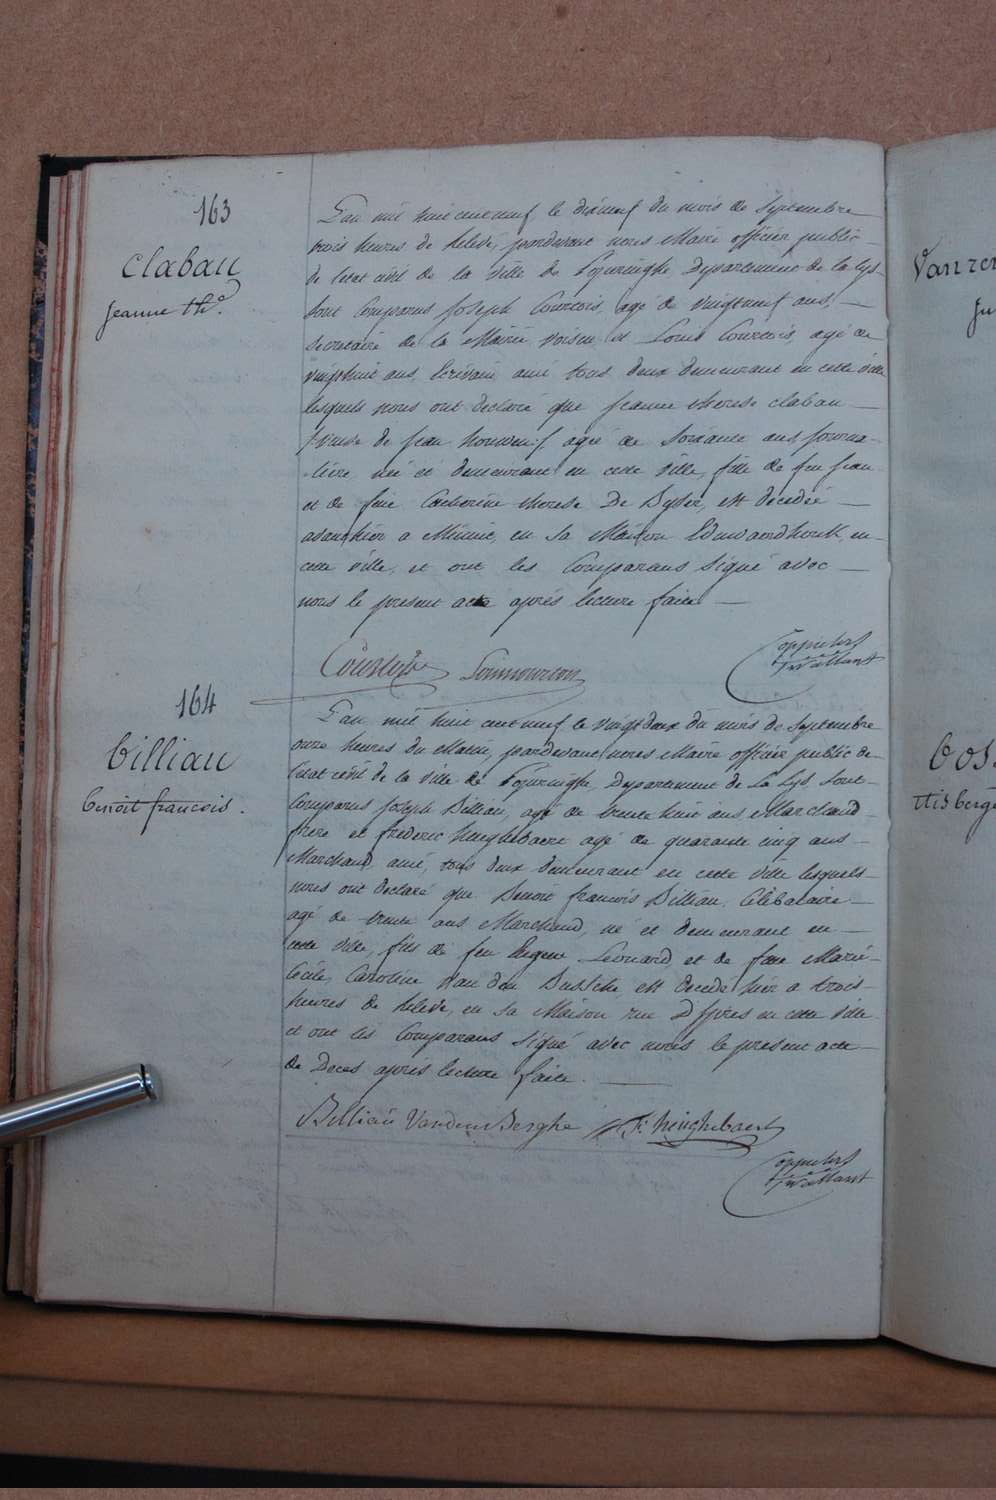 163
Clabau
Jeanne th.e
L'an mil huit cent neuf le dixneuf du mois de Septembre
trois heures de relevé, pardevant nous Maire officier public
de l'état civil de la ville de Poperinghe, Departement de la Lys,
sont Comparus Joseph Courtois, agé de vingtneuf ans,
Secretaire de la Mairie, voisin, et Louis Courtois, agé de
vingthuit ans, Ecrivain, ami, tous deux demeurant en cette ville
lesquels nous ont declaré que Jeanne therese Clabau
veuve de jean houwenaf, agée de soixante ans journa-
-liere, née et demeurant en cette ville, fille de feu jean
et de feue Catherine therese De Dyser, est decedée
avant hier a Minuit, en sa Maison Edewaerdhouk, en
cette ville, et ont les Comparans Signé avec
nous le present acte après lecture faite
Coppieters
t' Wallant
164
billiau
benoit francois.
L'an mil huit cent neuf le vingtdeux du mois de Septembre
onze heures du Matin, pardevant nous Maire officier public de
l'état civil de la ville de Poperinghe, Departement de La Lys, sont
Comparus Joseph Billiau, agé de trente huit ans, Marchand
frere et frederic heughebaert agé de quarante cinq ans
Marchand, ami, tous deux demeurant en cette ville lesquels
nous ont declaré que Benoit francois Billiau, Célébataire
agé de trente ans Marchand, né et demeurant en
cette ville, fils de feu Eugene Léonard, et de feue Marie
Cécile Caroline Van den Bussche, est decedé hier a trois
heures de relevé, en sa Maison rue D'ypres en cette ville
et ont les Comparans Signé avec nous le present acte
de Deces après lecture faite.
Billiau Vanden Berghe F: heughebaert
Coppieters
t' Wallant
Vanren
Ju
bos